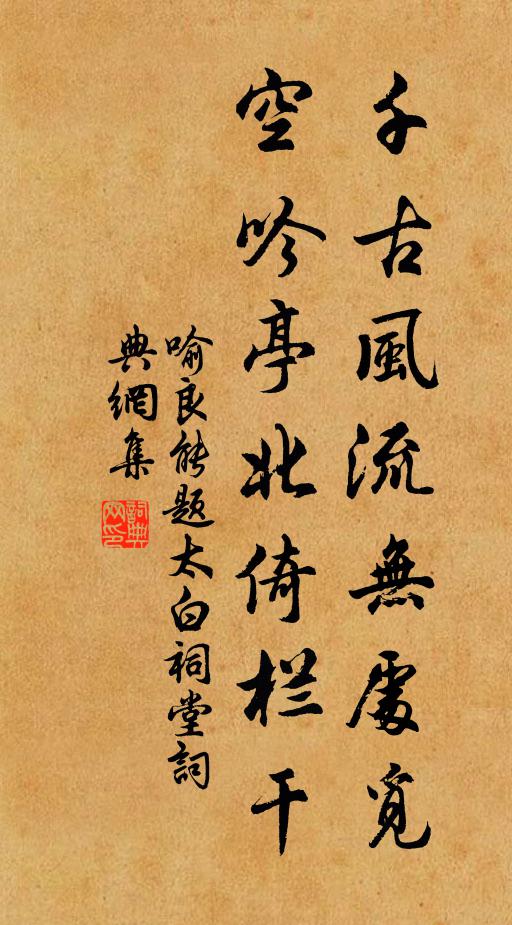 千古風流無處覓
空吟亭北倚栏干
喻良能題太白祠堂詞
典網集
詞典网印